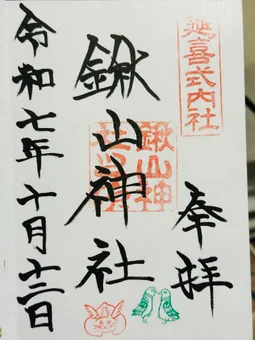 延喜式内社
奉拝
鍬山神社
鍬山神
社
令和七年十月十二日